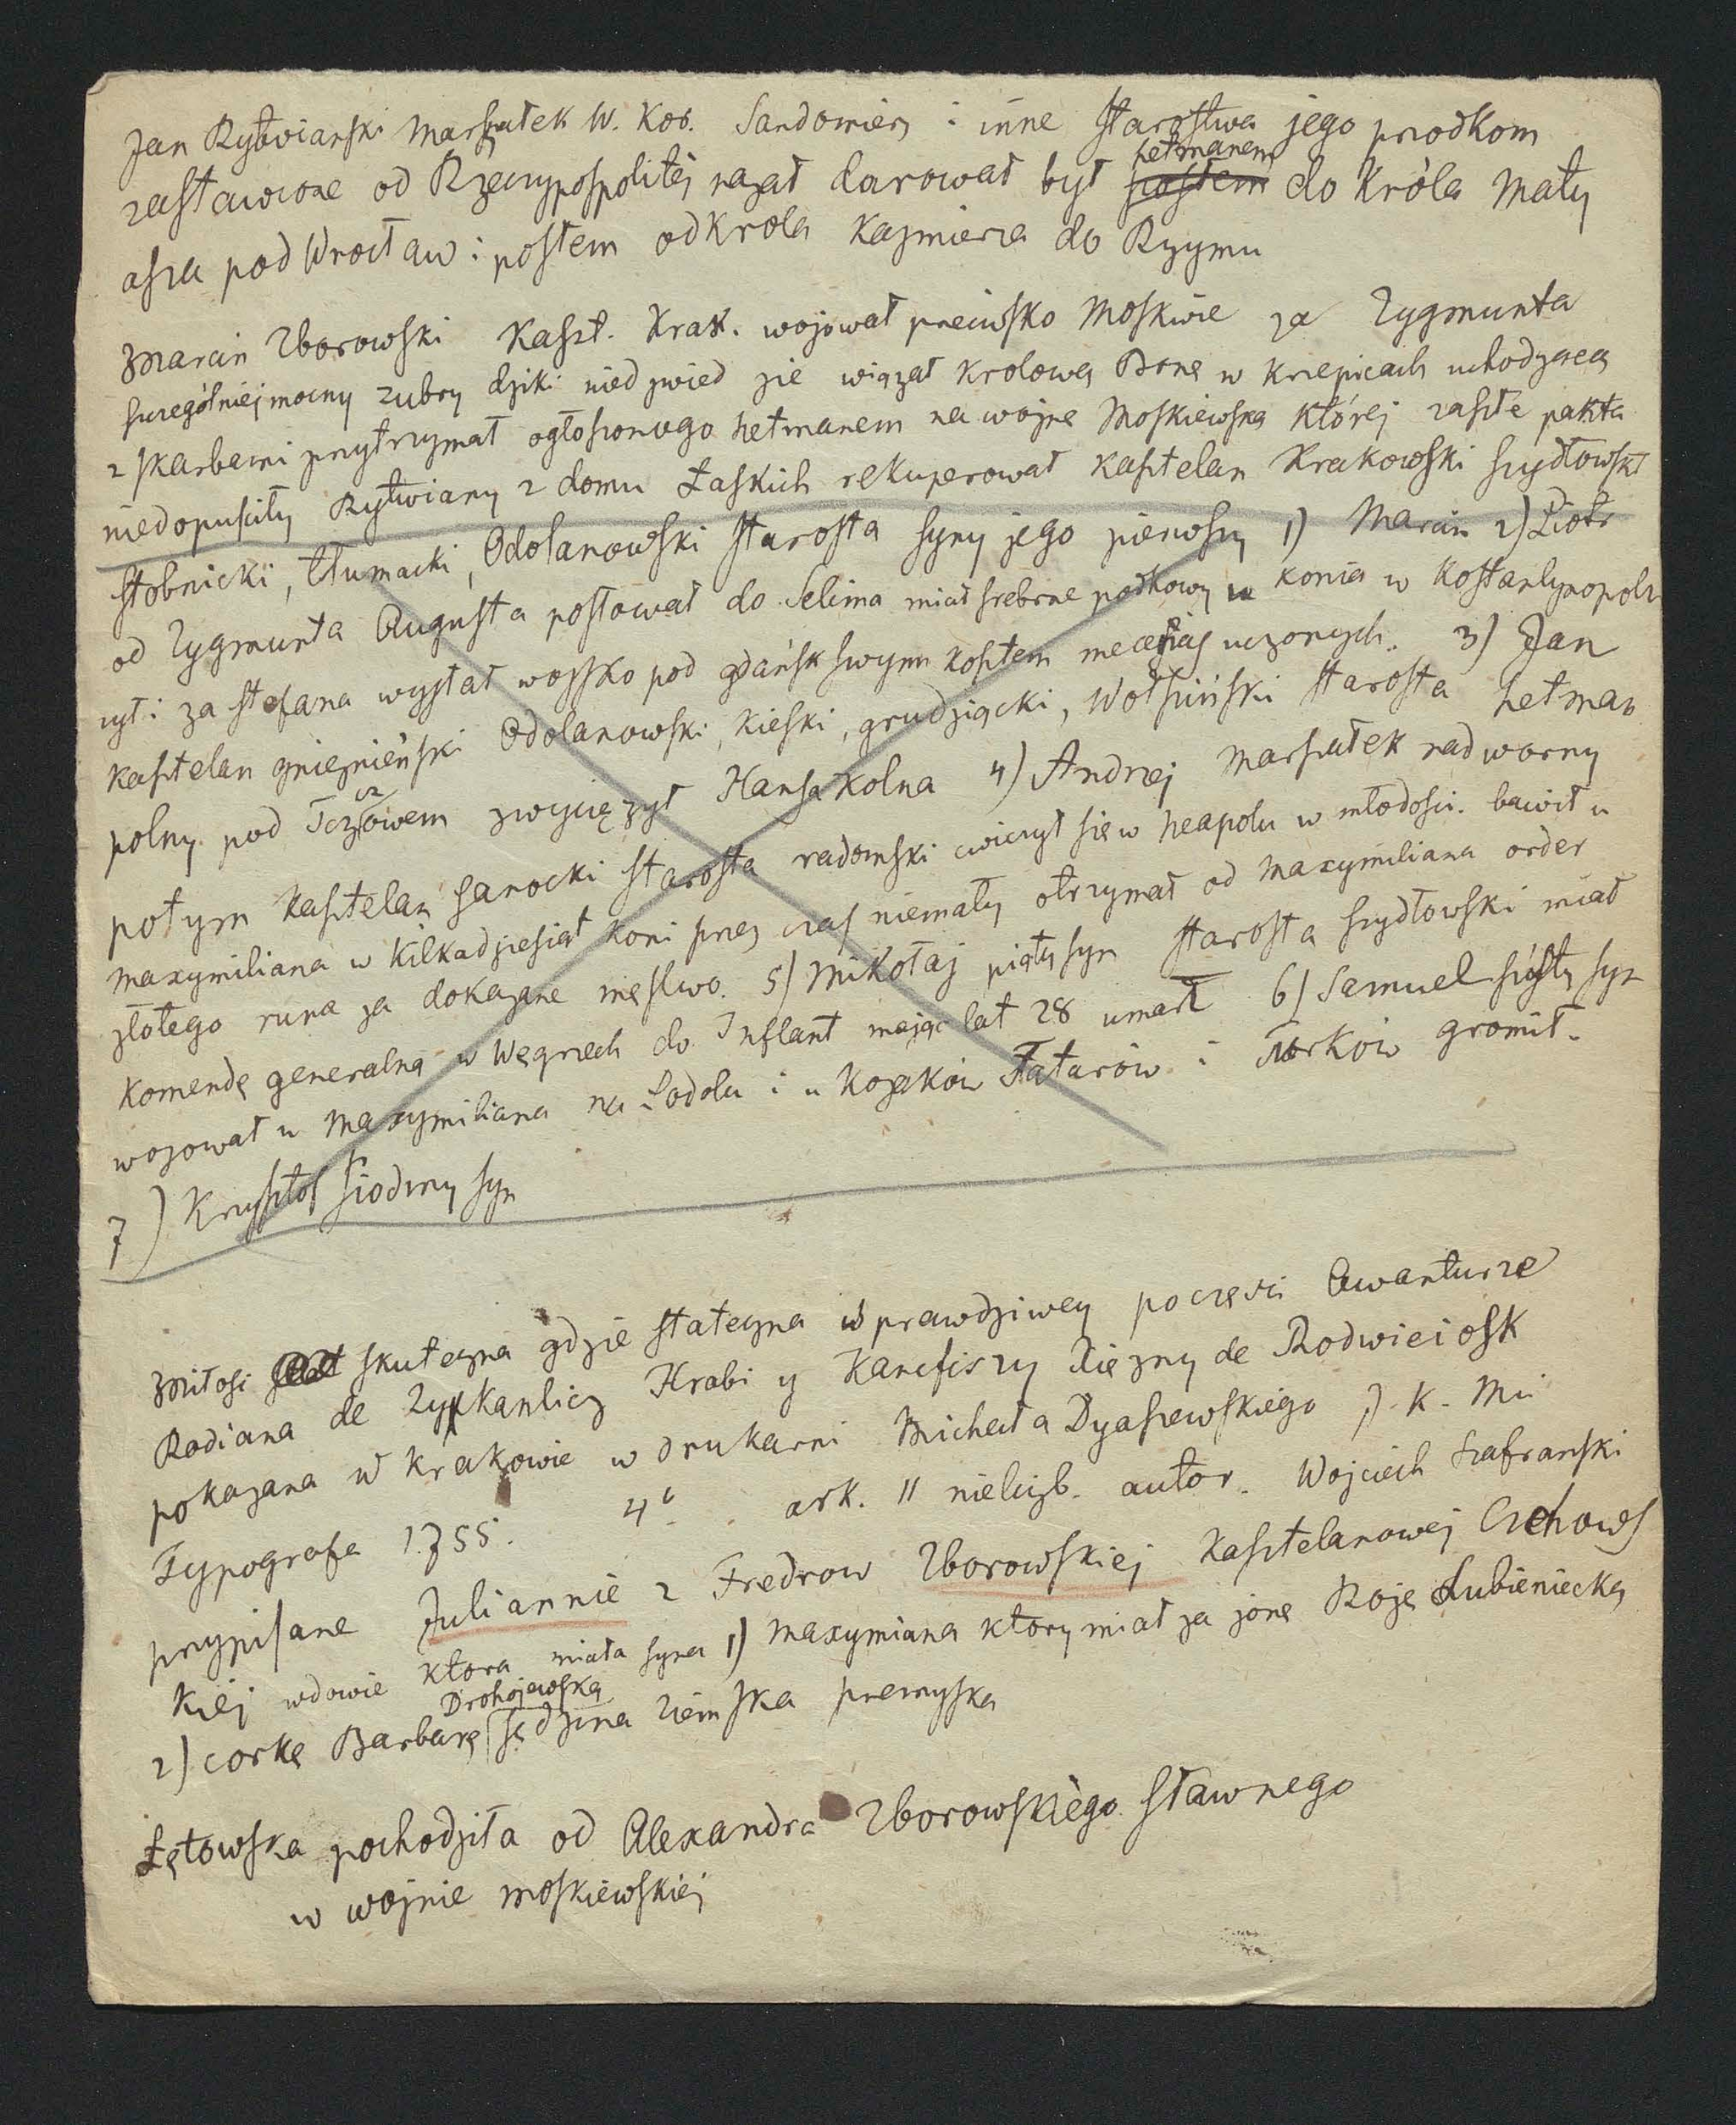 Jan Rytwianski Marszałek W. Kor. Sandomierz i inne starostwa jego przodkom
zastawione od Rzeczypospolitej nazat darował był hetmanem do Króla Maty
asza pod Wrocław i posłem od Krola Kazmierza do Rzymu
Marcin Zborowski Kaszt. Krak. wojował przeciwsko Moskwie za Zygmunta
szczególniej mocny zubry dziki niedzwied zie wiązał krolowa Bone w Krzepicach uchodzącą
z skarbami przytrzymał ogłoszonego hetmanem na wojne Moskiewska której zaszłe pakta
niedopusciły Rytwiany z domu Łaskich rekuperował kasztelan Krakowski szydłowski
stobnicki, tłumacki, Odolanowski starosta syny jego pierwszy 1) Marcin 2) Piotr
od Zygmunta Augusta posłował do Selima miał srebrne podkowy u konia w Kostantynopolu
ryt i za stefana wysłał wojsko pod gdańsk swym kosztem mecenas uczonych. 3) Jan
kasztelan gnieznieński Odolanowski, Kieski, grudziącki, Wołpiński starosta hetman
polny pod Tczowem zwyciężył Hansa Kolna 4) Andrzej Marszałek nadworny
potym kasztelan sanocki starosta radomski cwiczył sie w neapolu w młodosci. bawił u
maxymiliana w kilkadziesiat koni przez czas niemały otrzymał od maxymiliana order
złotego runa za dokazane męstwo. 5) Mikołaj piąty syn starosta szydłowski miał
komendę generalną w Węgrzech do Inflant mając lat 28 umarł 6) Samuel szósty syn
wojował u maxymiliana na Podolu i u kozaków Tatarów i Turków gromił.
7) Krysztof siodmy syn
Miłosc skuteczna gdzie stateczna w prawdziwey poczesci Awanturze
Rodiana de Zypkanlicz Hrabi y Karefiszy Xiezny de Rodwieciosk
pokazana w Krakowie w drukarni Michała Dyaszewskiego J. K. Mci
Typografa 1755. 4o ark. 11 nieliczb. autor. Wojciech Szafranski
przypisane Juliannie z Fredrow Zborowskiej Kasztelanowej Czchows
kiej wdowie ktora miała syna 1) maxymiana ktory miał za jone Roze Lubieniecką
2) corkę Barbarę Drohojewską sędzina ziemska przemyska
Łętowska pochodziła od Alexandra Zborowskiego sławnego
w wojnie moskiewskiej